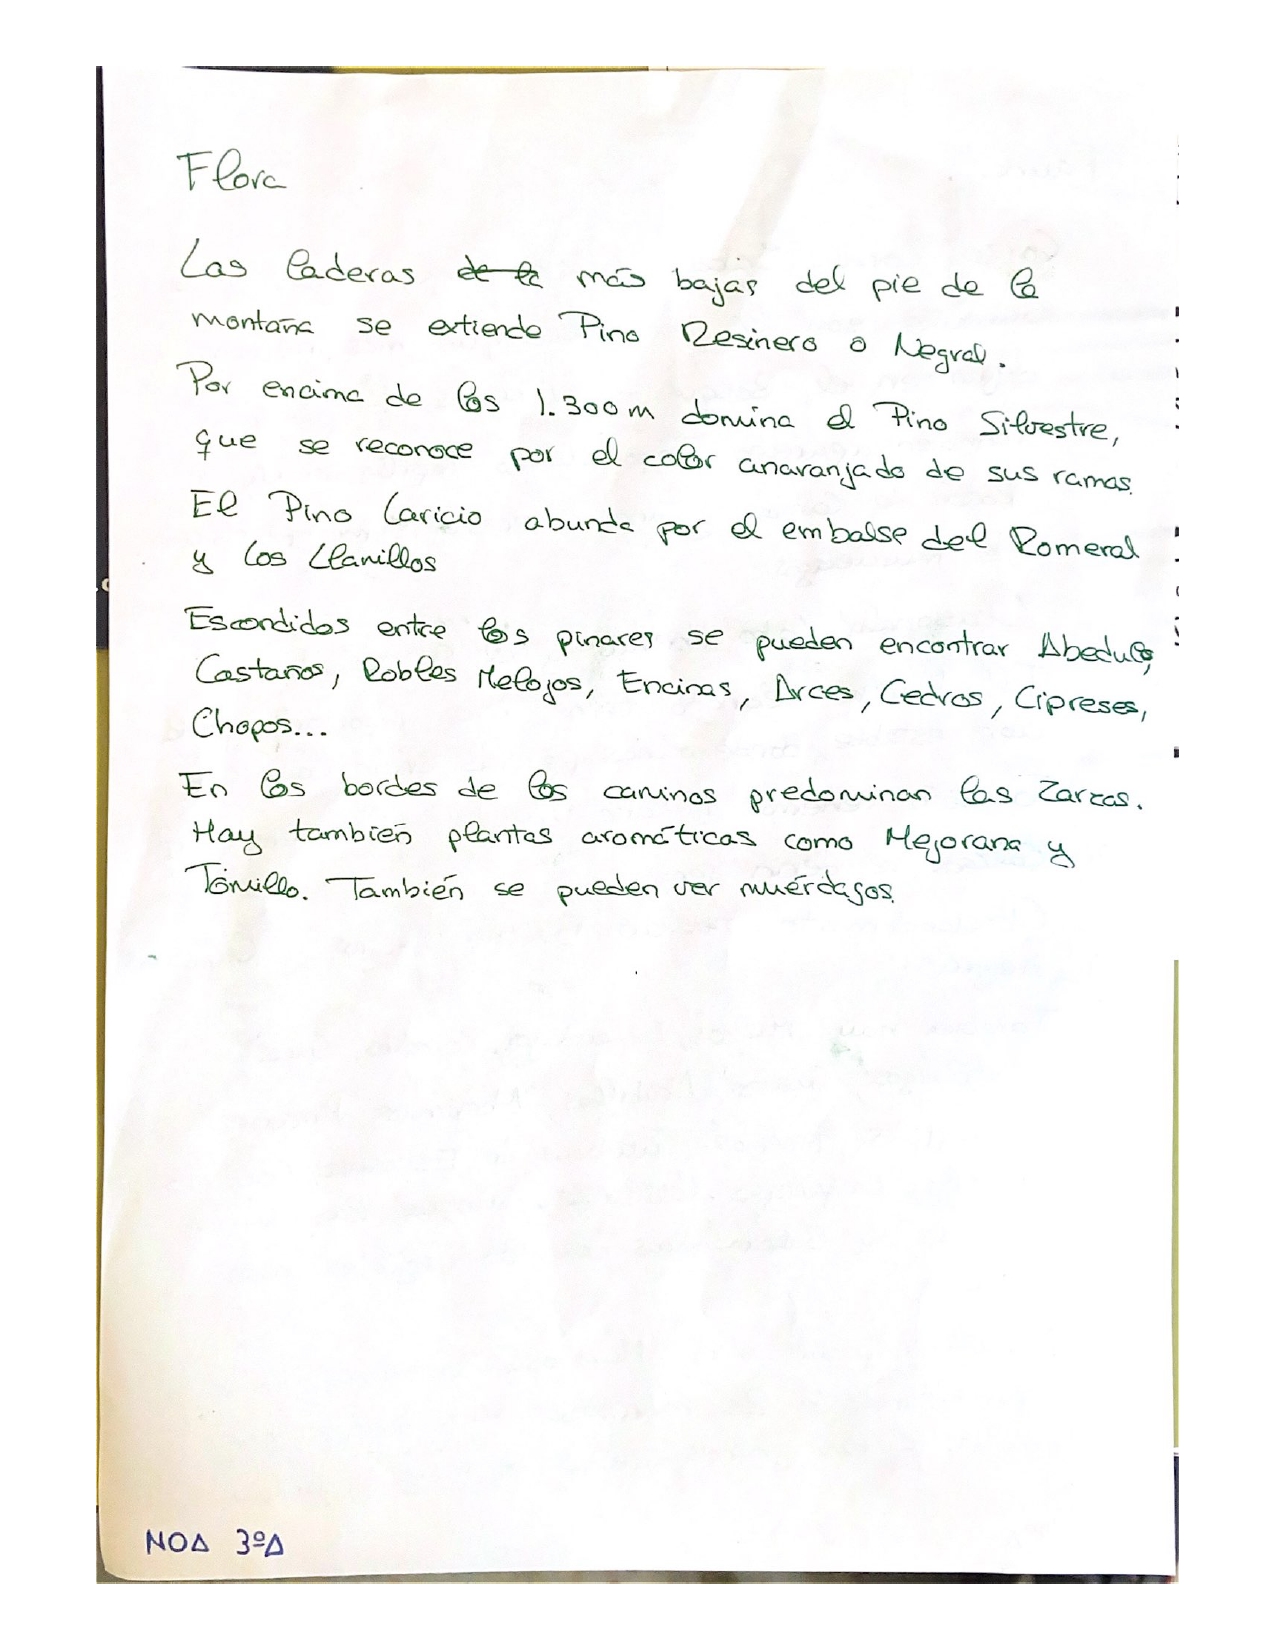 Flora
Las laderas de la más bajas del pie de la
montaña se extiende Pino Resinero o Negral.
Por encima de los 1.300m domina el Pino Silvestre,
que se reconoce por el color anaranjado de sus ramas.
El Pino Laricio abunda por el embalse del Romeral
y los Llanillos
Escondidos entre los pinares se pueden encontrar Abedules,
Castaños, Robles Melojos, Encinas, Arces, Cedros, Cipreses,
Chopos...
En los bordes de los caminos predominan las Zarzas.
Hay también plantas aromáticas como Mejorana y
Tomillo. También se pueden ver muérdagos.
NOA 3ºA